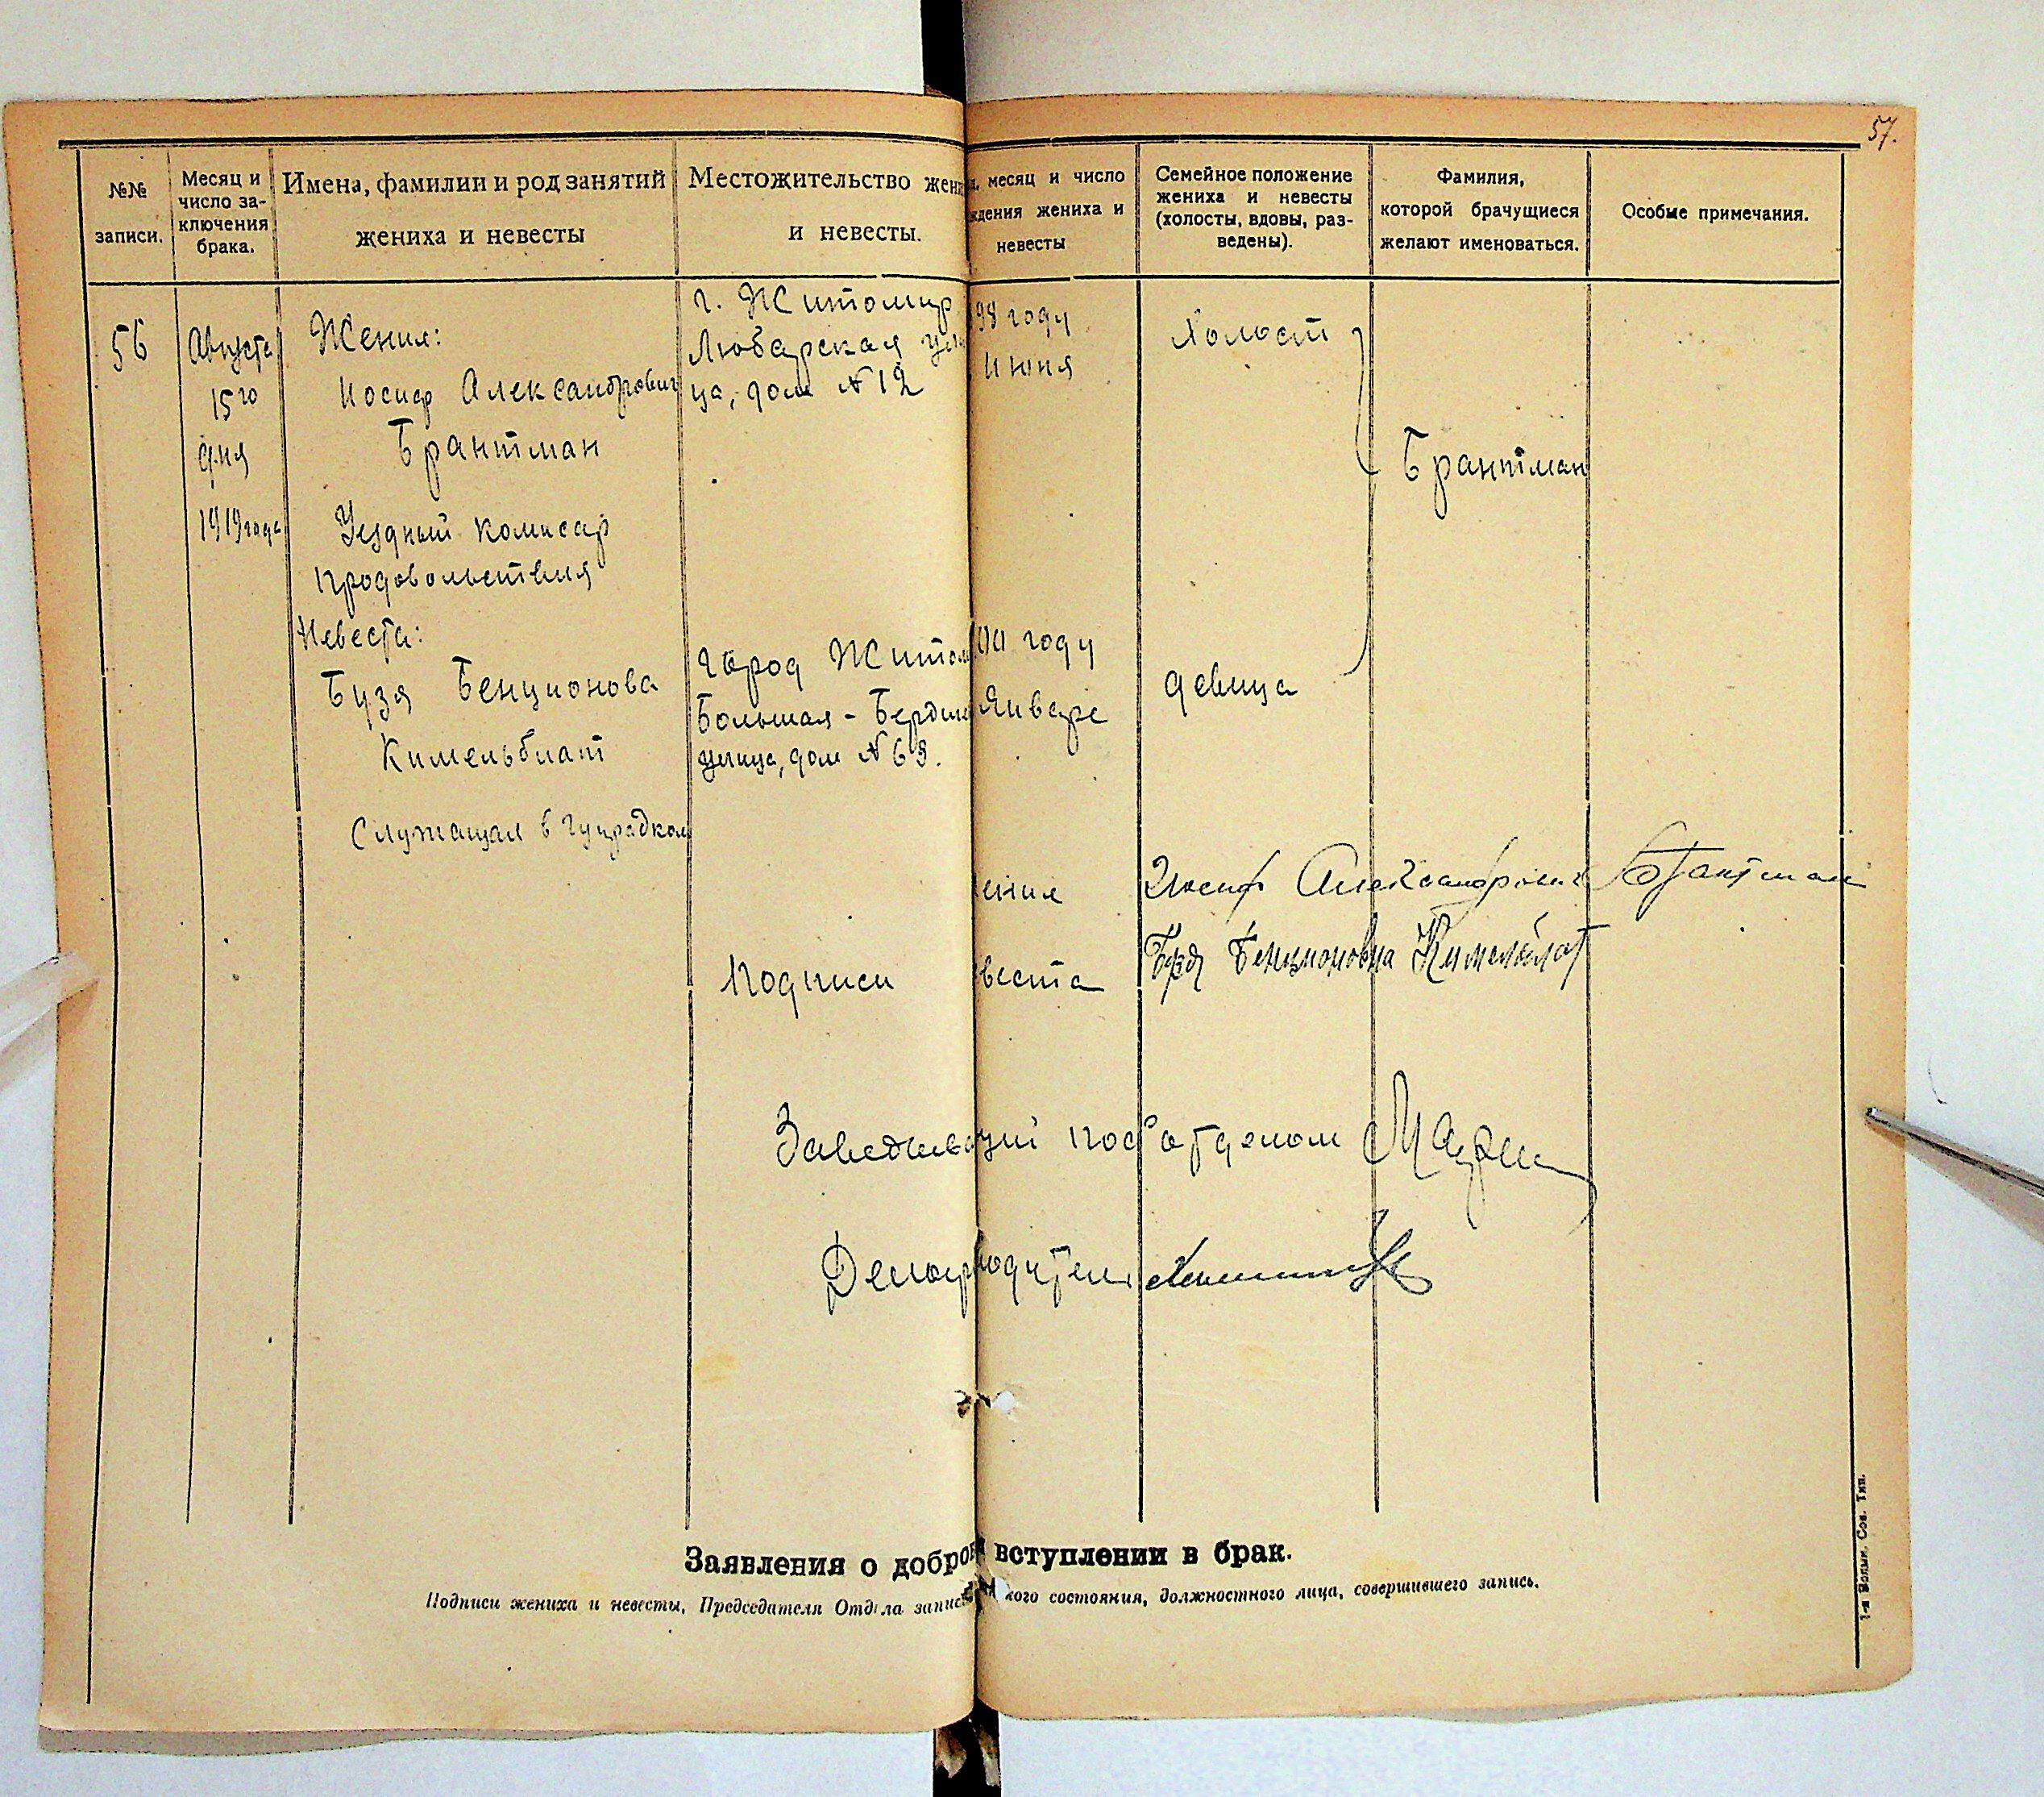 57.
№№
записи.
Месяц и
число за-
ключения
брака.
Имена, фамилии и род занятий
жениха и невесты
Местожительство жени
и невесты.
месяц и число
ждения жениха и
невесты
Семейное положение
жениха и невесты
(холосты, вдовы, раз-
ведены).
Фамилия,
которой брачущиеся
желают именоваться.
Особые примечания.
56
Августа
15го
дня
1919 года
Жених:
Иосиф Александрович
Брантман
Уездный комисар
продовольствия
г. Житомир
Любарская ули
ца, дом №12
98 году
Июня
Холост
Брантман
Невеста:
Бузя Бенционова
Кимельблат
Служащая в
город Житом
Большая - Бердич
улица, дом №69.
году
Январе
девица
Подписи
ених
Иосиф Александрович Брантман
веста
Бузя Бенционовна Кимельблат
Заведывающий под отделом
Делопроизводитель
Заявления о добров вступлении в брак.
Подписи жениха и невесты, Председателя Отдела записи кого состояния, должностного лица, совершившего запись.
1-я Волын. Сов. Тип.